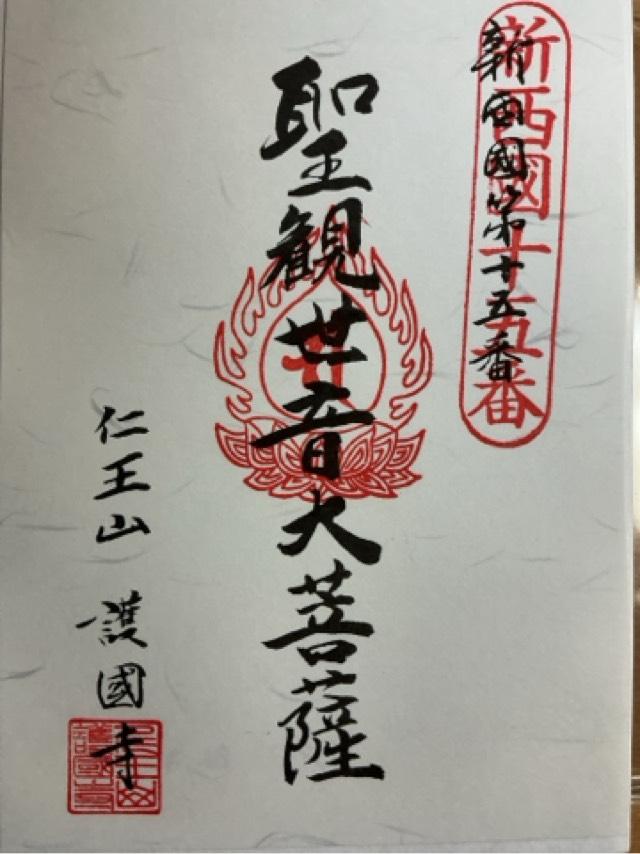 新西國十五番
新西國第十五番
聖観世音大菩薩
仁王山 護國寺